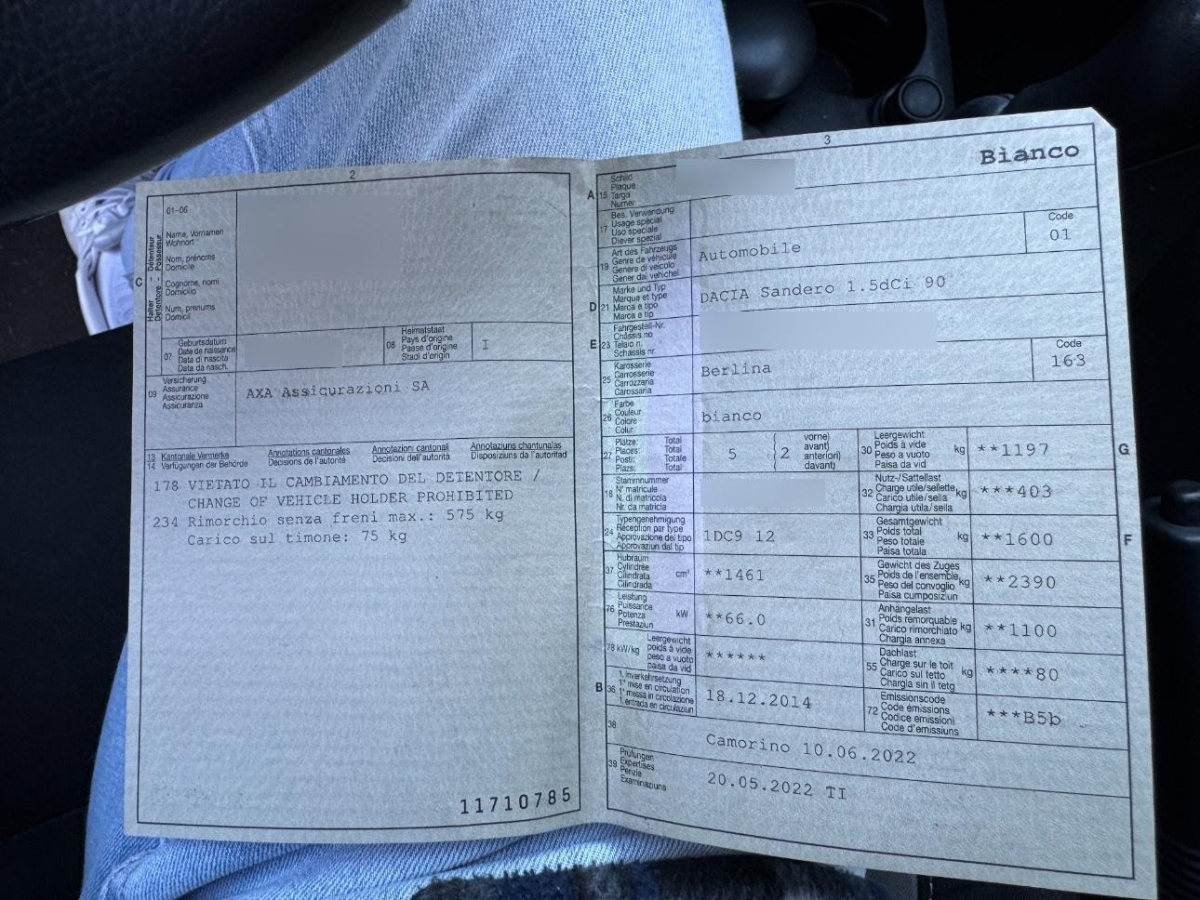 2
01-06
Halter - Détenteur
Detentore - Possessur
C
Name, Vornamen
Wohnort
Nom, prénoms
Domicile
Cognome, nomi
Domicilio
Num, prenums
Domicil
07
Geburtsdatum
Date de naissance
Data di nascita
Data da nasch.
08
Heimatstaat
Pays d'origine
Paese d'origine
Stadi d'origin
I
09
Versicherung
Assurance
Assicurazione
Assicuranza
AXA Assicurazioni SA
13 Kantonale Vermerke Annotations cantonales Annotazioni cantonali Annotaziuns chantunalas
14 Verfügungen der Behörde Décisions de l'autorité Decisioni dell'autorità Disposiziuns da l'autoritad
178 VIETATO IL CAMBIAMENTO DEL DETENTORE /
CHANGE OF VEHICLE HOLDER PROHIBITED
234 Rimorchio senza freni max.: 575 kg
Carico sul timone: 75 kg
11710785
3
Bianco
A 15
Schild
Plaque
Targa
Numer
17
Bes. Verwendung
Usage spécial
Uso speciale
Diever spezial
19
Art des Fahrzeugs
Genre de véhicule
Genere di veicolo
Gener dal vehichel
Automobile
Code
01
D 21
Marke und Typ
Marque et type
Marca e tipo
Marca e tip
DACIA Sandero 1.5dCi 90
E 23
Fahrgestell-Nr.
Châssis no
Telaio n.
Schassis nr.
25
Karosserie
Carrosserie
Carrozzeria
Carossaria
Berlina
Code
163
26
Farbe
Couleur
Colore
Colur
bianco
27
Plätze: Total
Places: Total
Posti: Totale
Plazs: Total
5
2
vorne)
avant)
anteriori)
davant)
30
Leergewicht
Poids à vide
Peso a vuoto
Paisa da vid
kg
**1197
G
18
Stammnummer
N° matricule
N. di matricola
Nr. da matricla
32
Nutz-/Sattellast
Charge utile/sellette
Carico utile/sella
Chargia utila/sella
kg
***403
24
Typengenehmigung
Réception par type
Approvazione del tipo
Approvaziun dal tip
1DC9 12
33
Gesamtgewicht
Poids total
Peso totale
Paisa totala
kg
**1600
F
37
Hubraum
Cylindrée
Cilindrata
Cilindrada
cm³
**1461
35
Gewicht des Zuges
Poids de l'ensemble
Peso del convoglio
Paisa cumposiziun
kg
**2390
76
Leistung
Puissance
Potenza
Prestaziun
kW
**66.0
31
Anhängelast
Poids remorquable
Carico rimorchiato
Chargia annexa
kg
**1100
78 kW/kg
Leergewicht
poids à vide
peso a vuoto
paisa da vid
******
55
Dachlast
Charge sur le toit
Carico sul tetto
Chargia sin il tetg
kg
****80
B 36
1. Inverkehrsetzung
1re mise en circulation
1a messa in circolazione
1. entrada en circulaziun
18.12.2014
72
Emissionscode
Code émissions
Codice emissioni
Code d'emissiuns
***B5b
38
Camorino 10.06.2022
39
Prüfungen
Expertises
Perizie
Examinaziuns
20.05.2022 TI